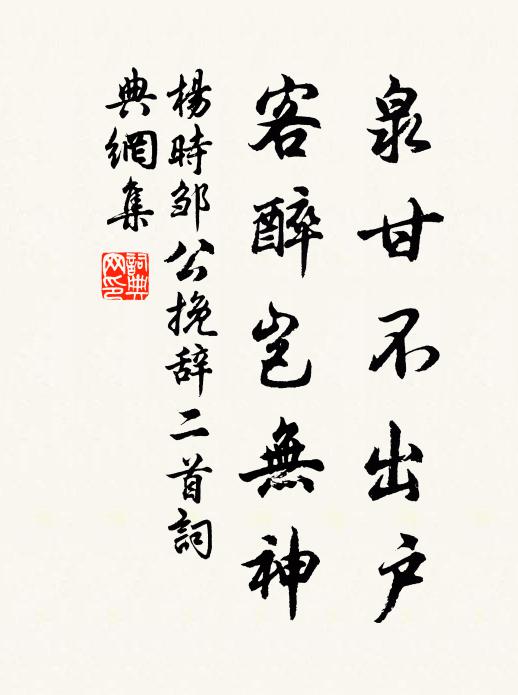 泉甘不出户
客醉岂無神
楊時邹公挽辞二首詞
典網集
詞典网印